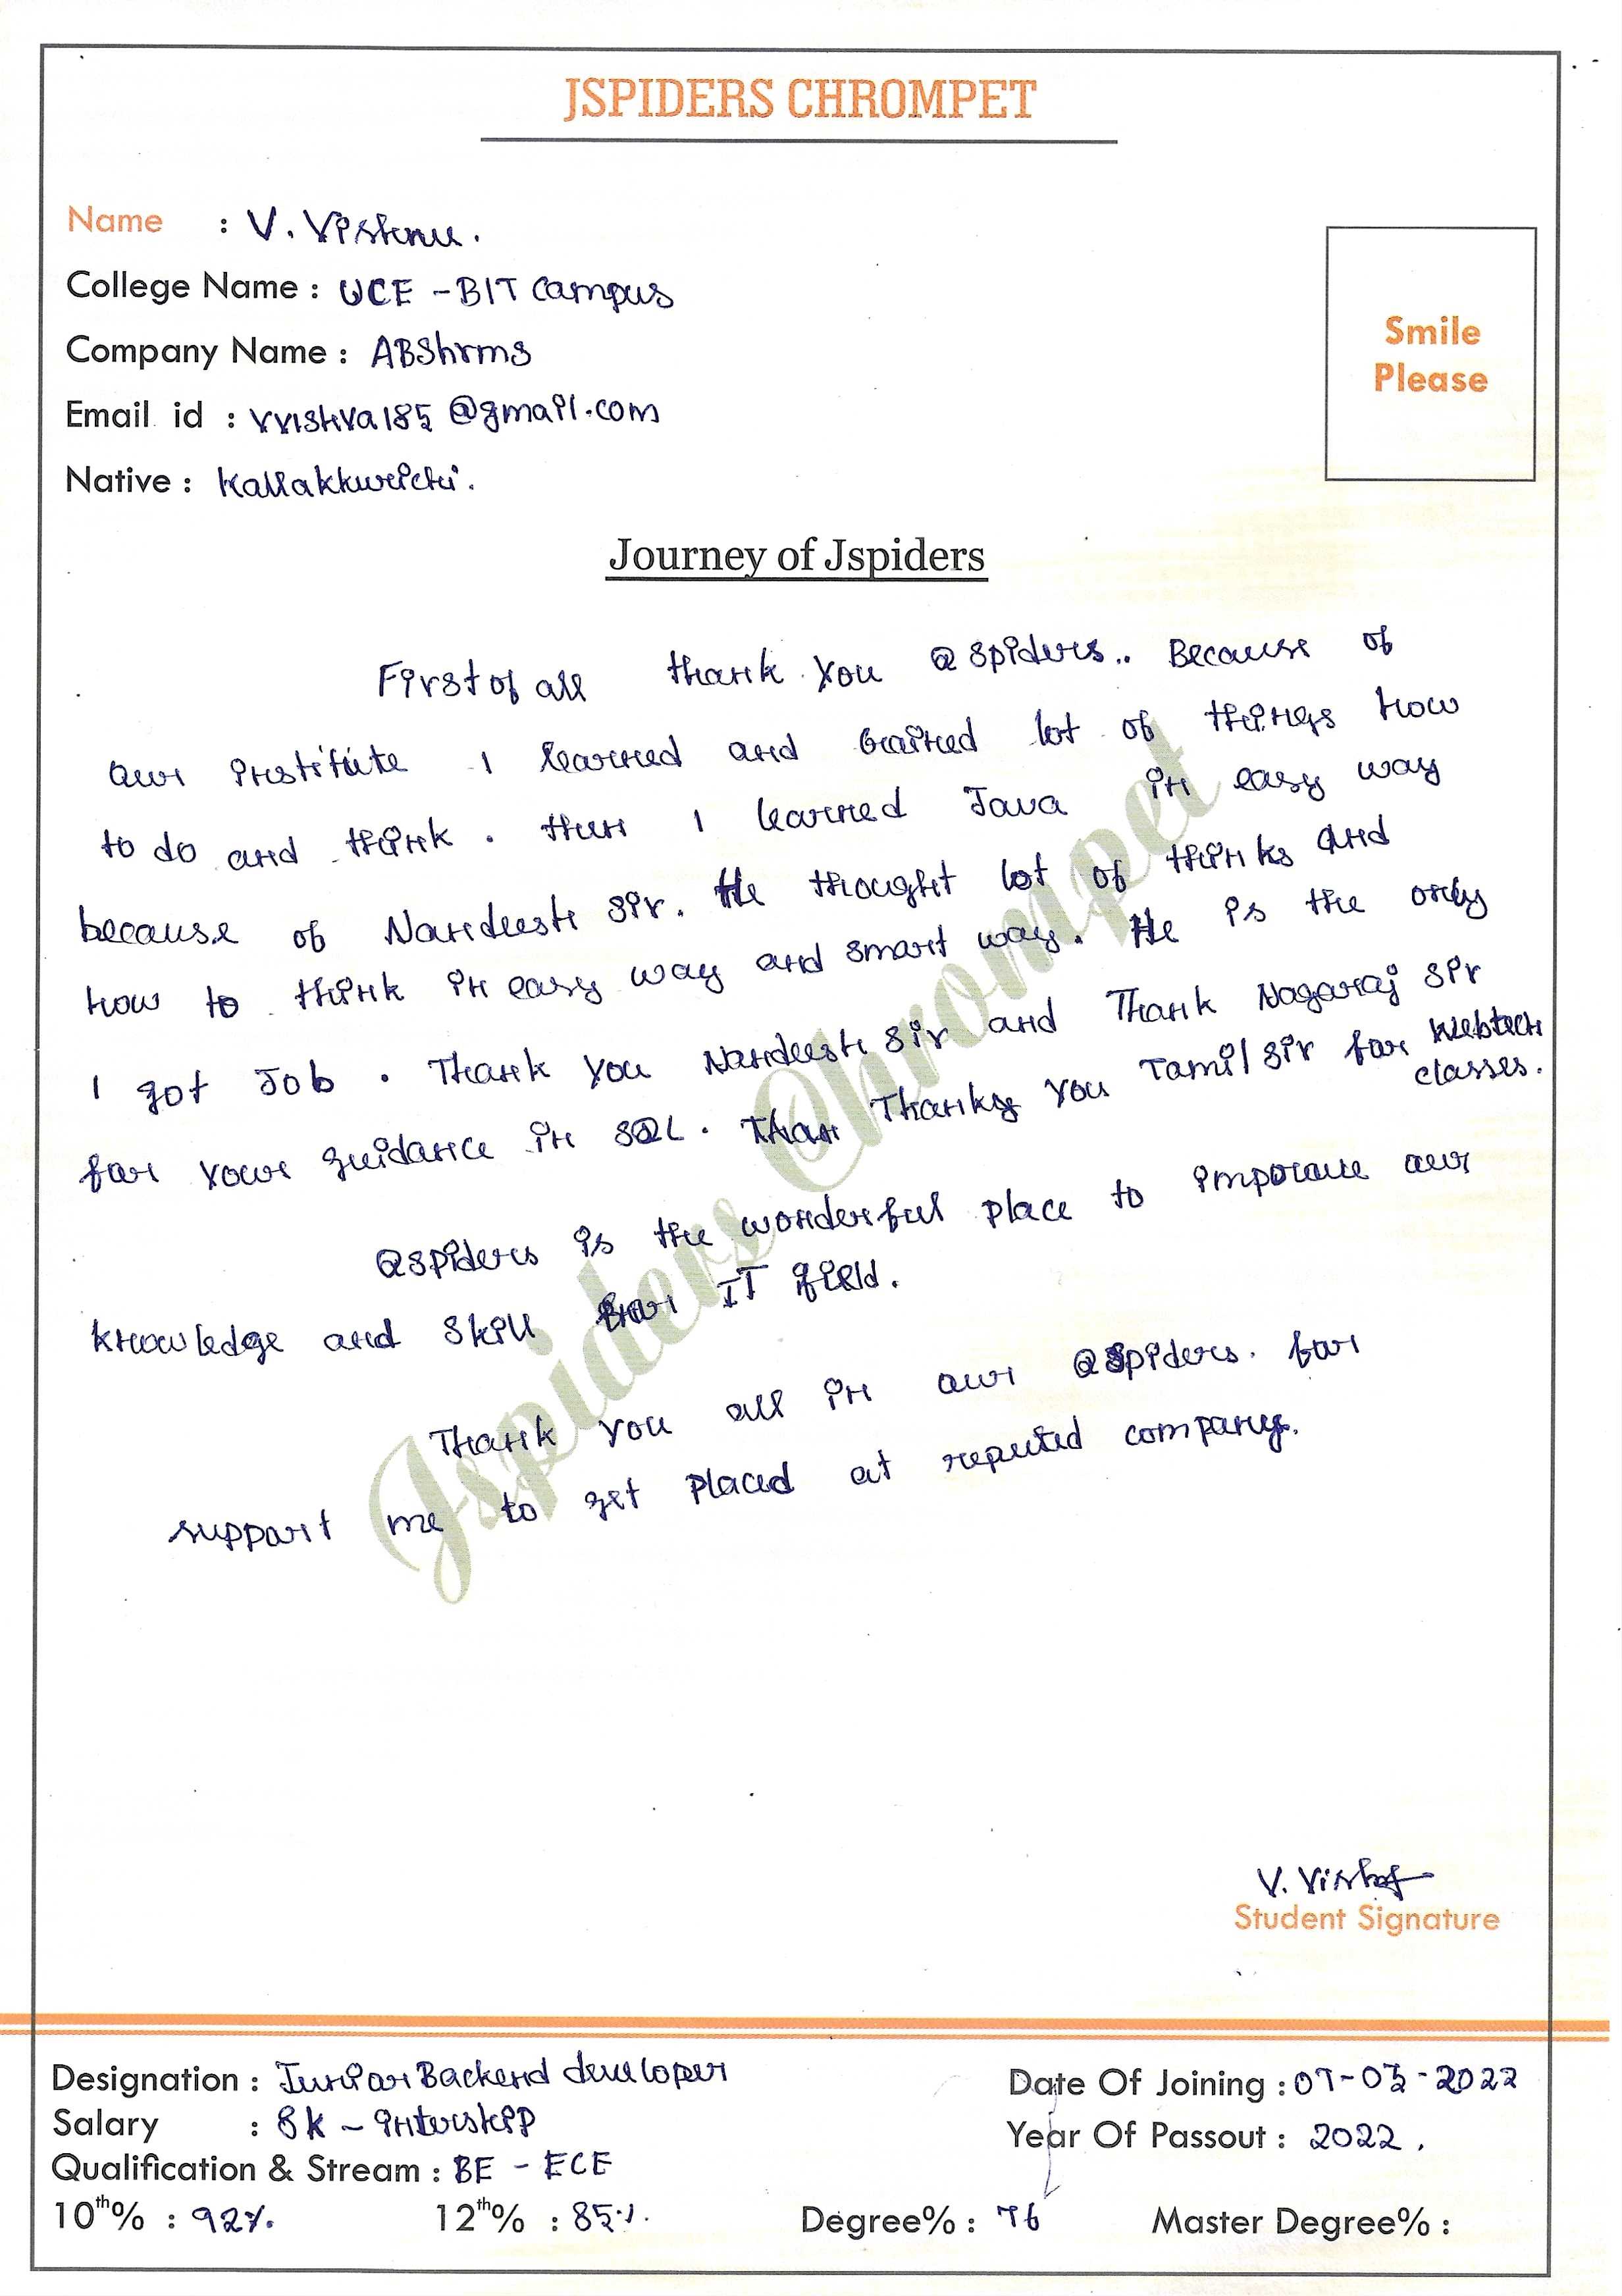 JSPIDERS CHROMPET
Name : V. Vishnu.
College Name : UCE - BIT Campus
Company Name : ABShrms
Email id : vvishva185@gmail.com
Native : Kallakkurichi.
Smile
Please
Journey of Jspiders
First of all thank you Qspiders.. Because of
our institute I learned and Gained lot of things how
to do and think. then I learned Java in easy way
because of Nandeesh sir. He thought lot of thinks and
how to think in easy way and smart way. He is the only
I got Job. Thank you Nandeesh sir and Thank Nagaraj sir
for your guidance in SQL. Than Thanky you Tamil sir for Webtech
classes.
Qspiders is the wonderful place to imporave our
knowledge and skill for IT field.
Thank you all in our Qspiders. for
support me to get placed at reputed company.
Jspiders Chrompet
V. Vishnu
Student Signature
Designation : Junior Backend developer
Date Of Joining : 07-03-2022
Salary : 8K - internship
Year Of Passout : 2022.
Qualification & Stream : BE - ECE
10th% : 92%. 12th% : 85%. Degree% : 76 Master Degree% :